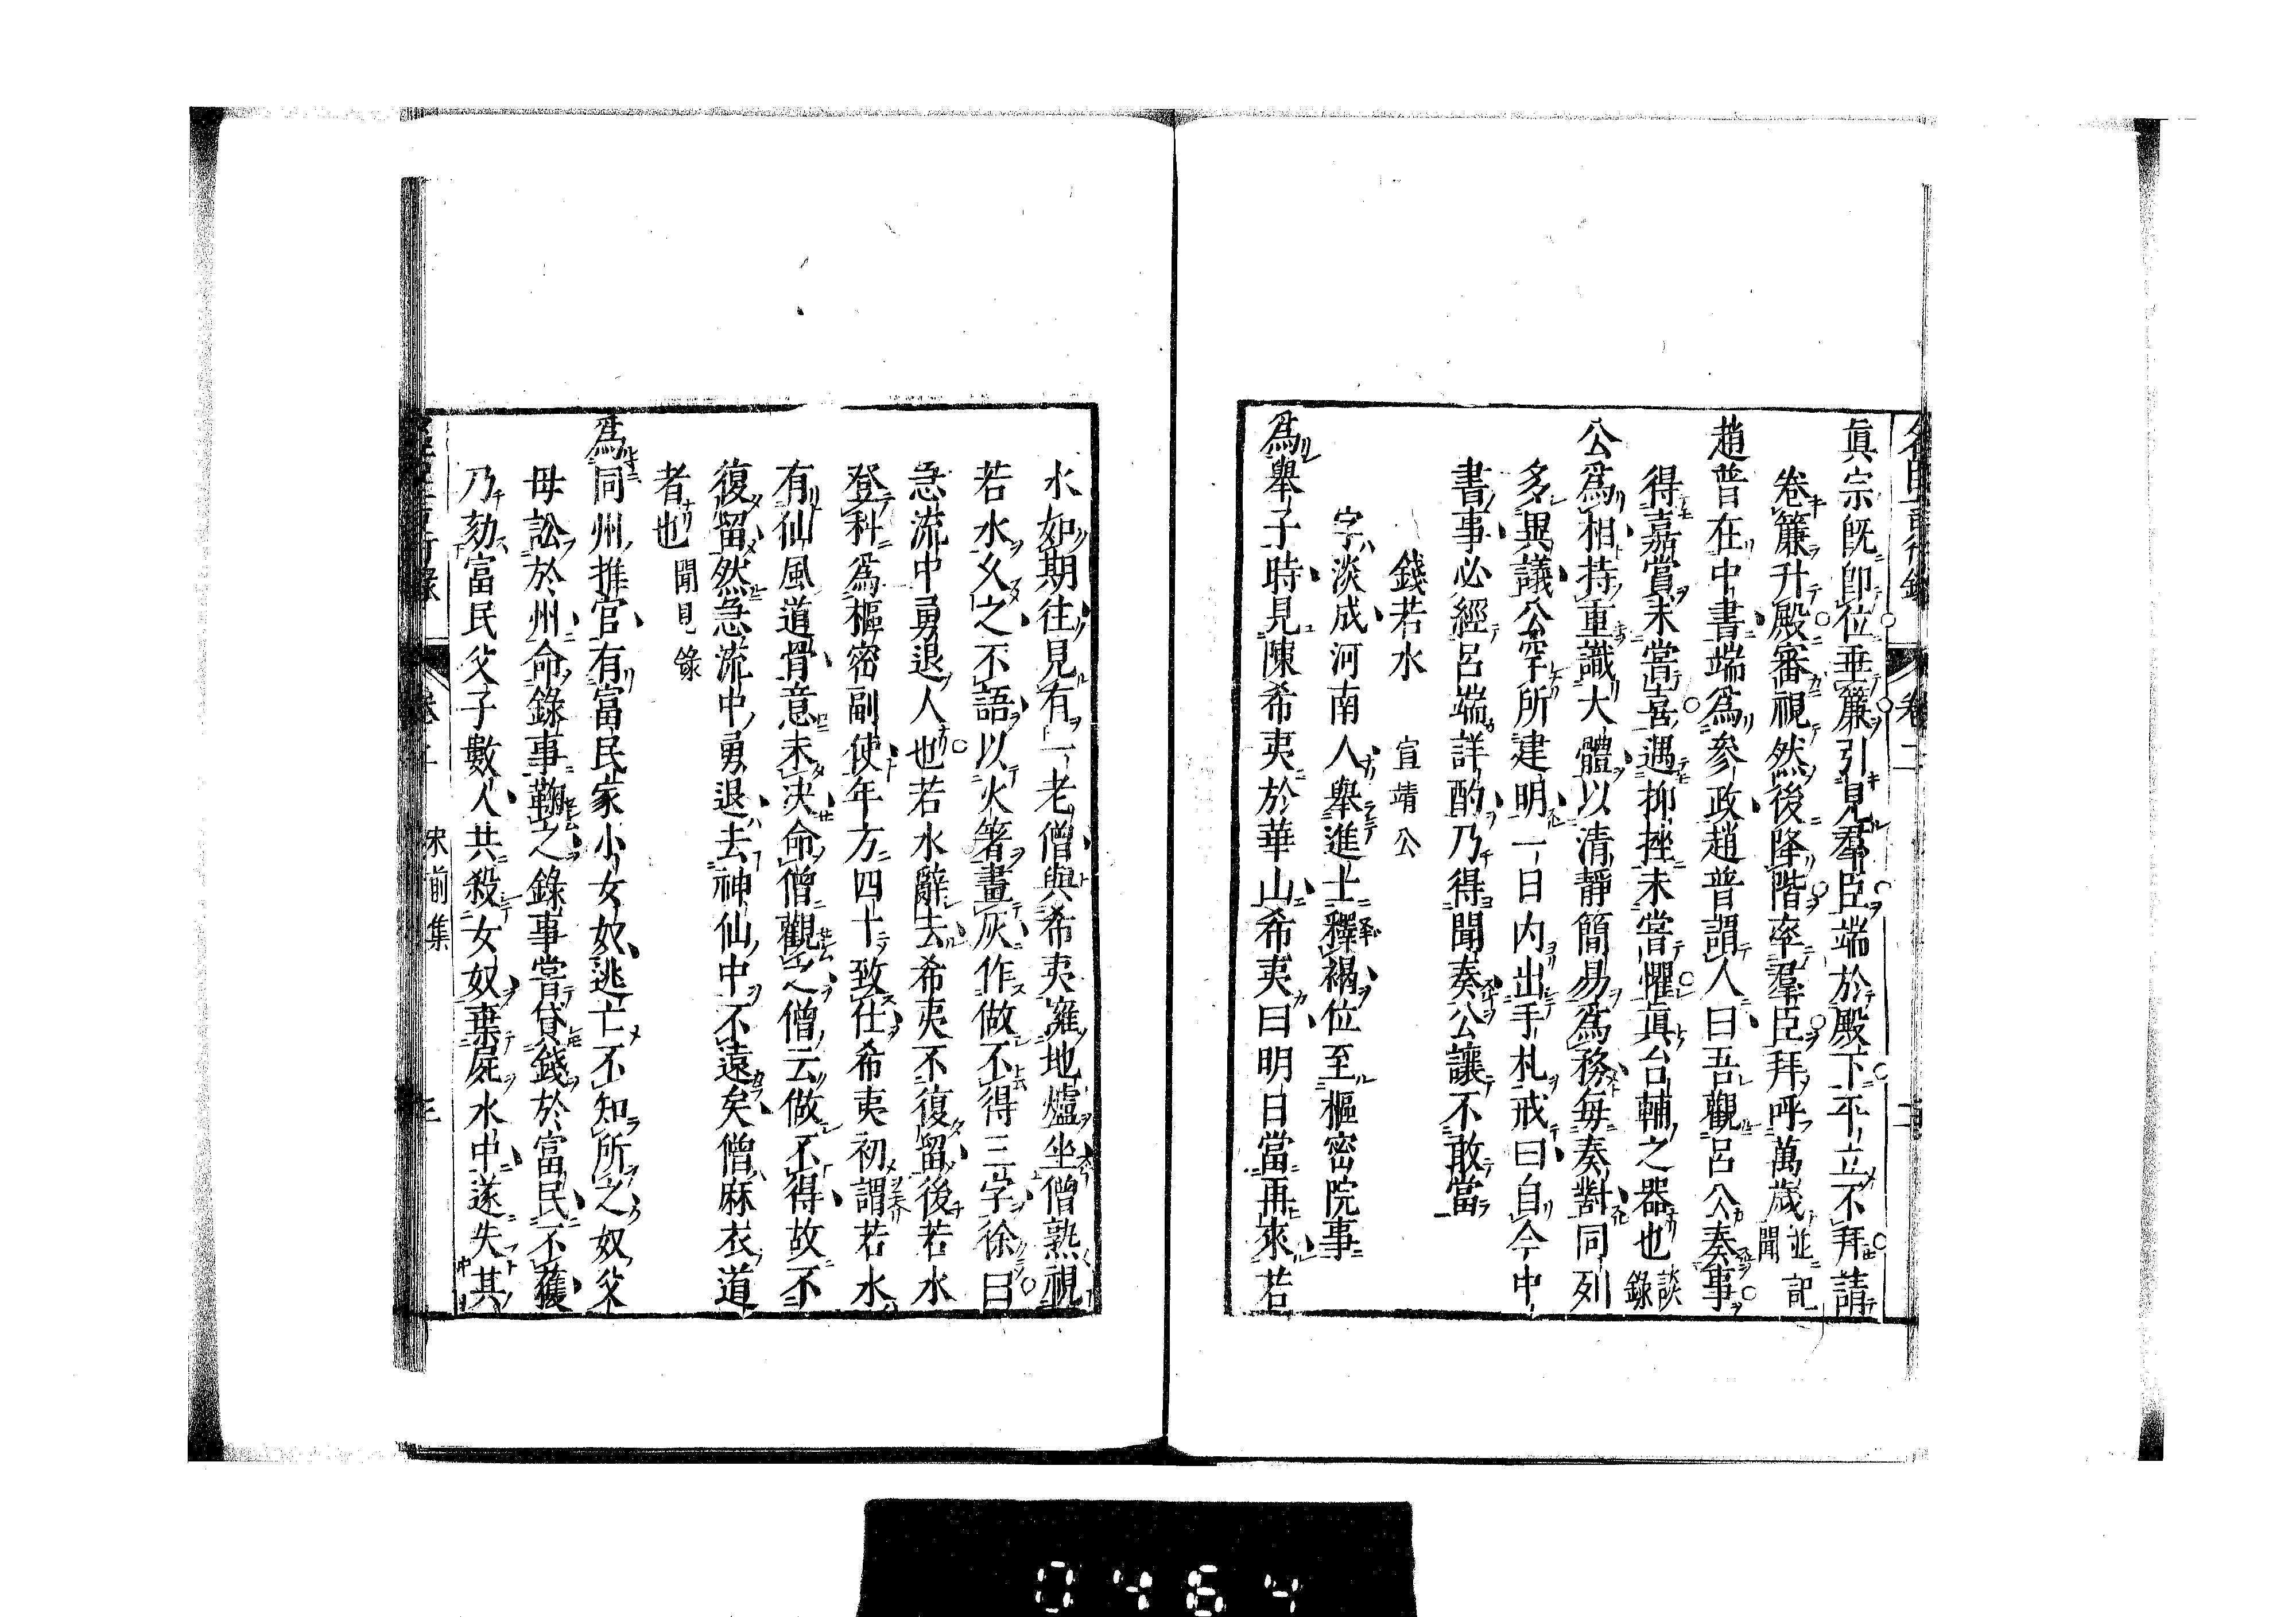 真宗既即位垂簾引見羣臣端於殿下平立不拜請
卷簾升殿審視然後降階率羣臣拜呼萬歳並記聞
趙普在中書端爲參政趙普謂人曰吾觀呂公奏事
得嘉賞未嘗喜遇抑挫未嘗懼真台輔之器也談録
公爲相持重識大體以清靜簡易爲務毎奏對同列
多異議公罕所建明一日内出手札戒曰自今中
書事必經呂端詳酌乃得聞奏公讓不敢當
錢若水 宣靖公
字淡成河南人舉進士釋褐位至樞密院事
爲舉子時見陳希夷於華山希夷曰明日當再來若
水如期往見有一老僧與希夷擁地爐坐僧熟視
若水久之不語以火箸畫灰作做不得三字徐曰
急流中勇退人也若水辭去希夷不復留後若水
登科爲樞密副使年方四十致仕希夷初謂若水
有仙風道骨意未決命僧觀之僧云做不得故不
復留然急流中勇退去神仙中不遠矣僧麻衣道
者也 聞見錄
爲同州推官有富民家小女奴逃亡不知所之奴父
母訟於州命錄事鞫之錄事嘗貸錢於富民不獲
乃劾富民父子數人共殺女奴棄屍水中遂失其
宋前集
0464